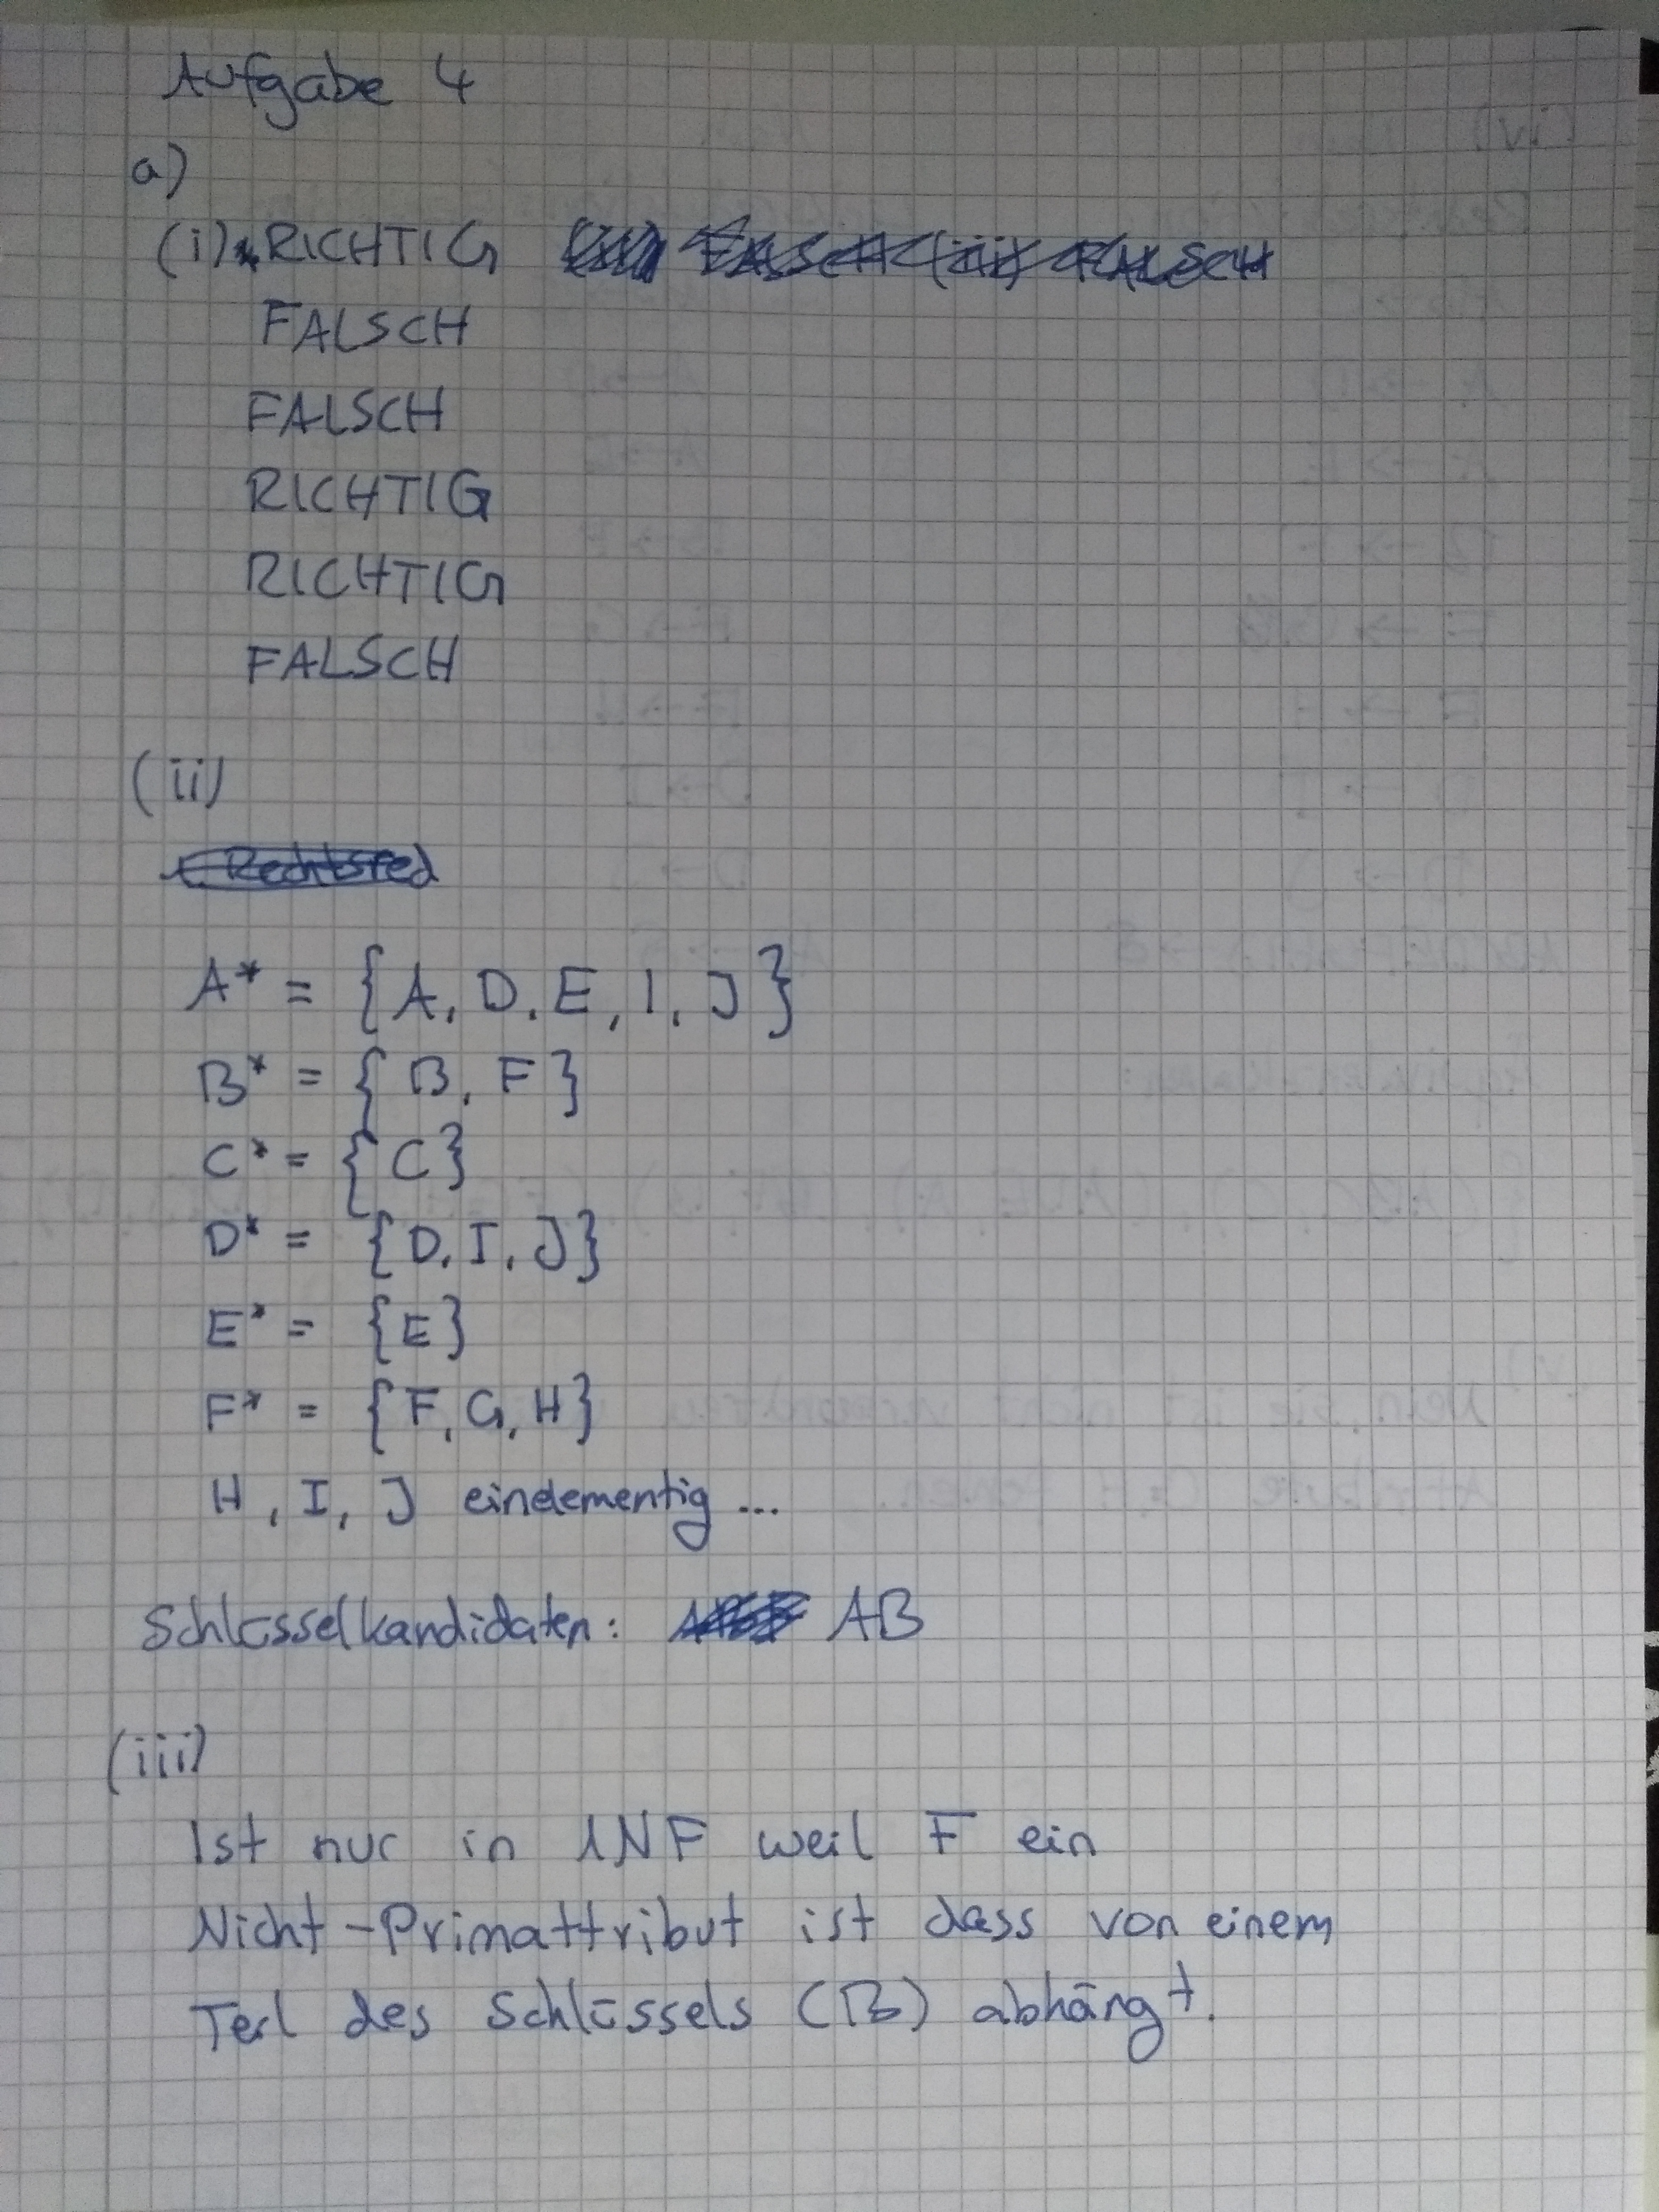 Aufgabe 4
a)
(i) RICHTIG
FALSCH
FALSCH
RICHTIG
RICHTIG
FALSCH
(ii)
A* = {A, D, E, I, J}
B* = {B, F}
C* = {C}
D* = {D, I, J}
E* = {E}
F* = {F, G, H}
H, I, J einelementig ...
Schlüsselkandidaten: AB
(iii)
Ist nur in 1NF weil F ein
Nicht-Primattribut ist dass von einem
Teil des Schlüssels (B) abhängt.